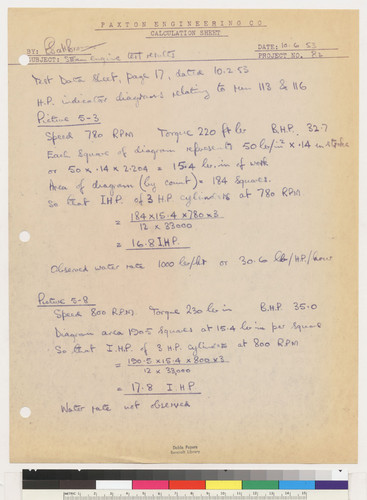 PAXTON ENGINEERING CO
CALCULATION SHEET
BY: DATE: 10.6.53
SUBJECT: Steam Engine Test Results PROJECT NO. P6
Test Data Sheet, page 17, dated 10.2.53
H.P. indicator diagrams relating to run 113 & 116
Picture 5-3
Speed 780 RPM Torque 220 ft lbs B.H.P. 32.7
Each square of diagram represents 50 lbs/in² x .14 in stroke
or 50 x .14 x 2.204 = 15.4 lbs.in of work
Area of diagram (by count) = 184 squares.
So that I.H.P. of 3 H.P. cylinders at 780 RPM.
= 184 x 15.4 x 780 x 3
12 x 33000
= 16.8 I.H.P.
Observed water rate 1000 lbs/hr or 30.6 lbs/H.P./hour
Picture 5-8
Speed 800 RPM. Torque 230 lbs in B.H.P. 35.0
Diagram area 190.5 squares at 15.4 lbs in per square
So that I.H.P. of 3 H.P. cylinders at 800 RPM
= 190.5 x 15.4 x 800 x 3
12 x 33000
= 17.8 I.H.P
Water rate not observed